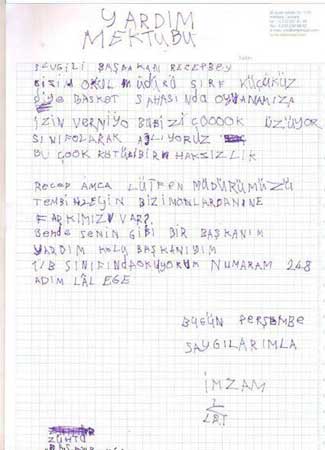 YARDIM
MEKTUBU
SEVGİLİ BAŞBAKAN RECEPBEY
BİZİM OKUL MÜDÜRÜ SIRF KÜÇÜKÜZ
DİYE BASKET SAHASINDA OYNAMAMIZA
İZİN VERMİYO BUBİZİ ÇOOOOK ÜZÜYOR
SINIFOLARAK AĞLIYORUZ
BU ÇOOK KÖTÜBİRHAKSIZLIK
RECEP AMCA LÜTFEN MÜDÜRÜMÜZÜ
TEMBİHLEYİN BİZİMONLARDANNE
FARKIMIZ VAR?
BENDE SENİN GİBİ BİR BAŞKANIM
YARDIM KOLU BAŞKANIYIM
1/B SINIFINDAOKUYORUM NUMARAM 248
ADIM LÂL EGE
BUGÜN PERŞEMBE
SAYGILARIMLA
İMZAM
ZÜHTÜ